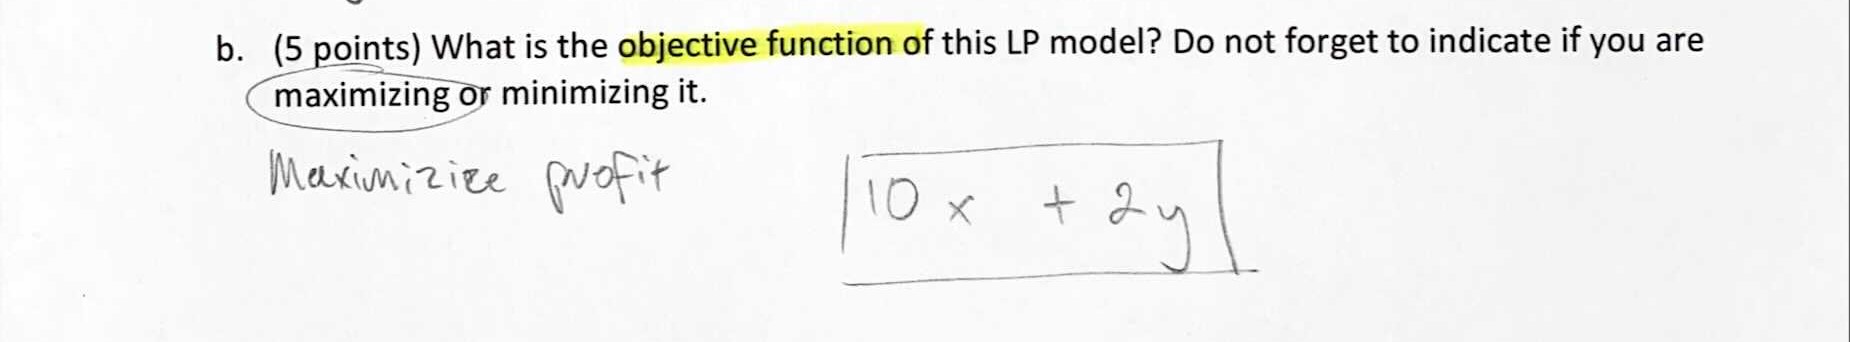 b. (5 points) What is the objective function of this LP model? Do not forget to indicate if you are
maximizing or minimizing it.
Maximizize profit
10 x + 2y